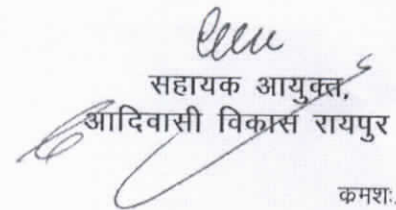 सहायक आयुक्त,
आदिवासी विकास रायपुर
कमशः.